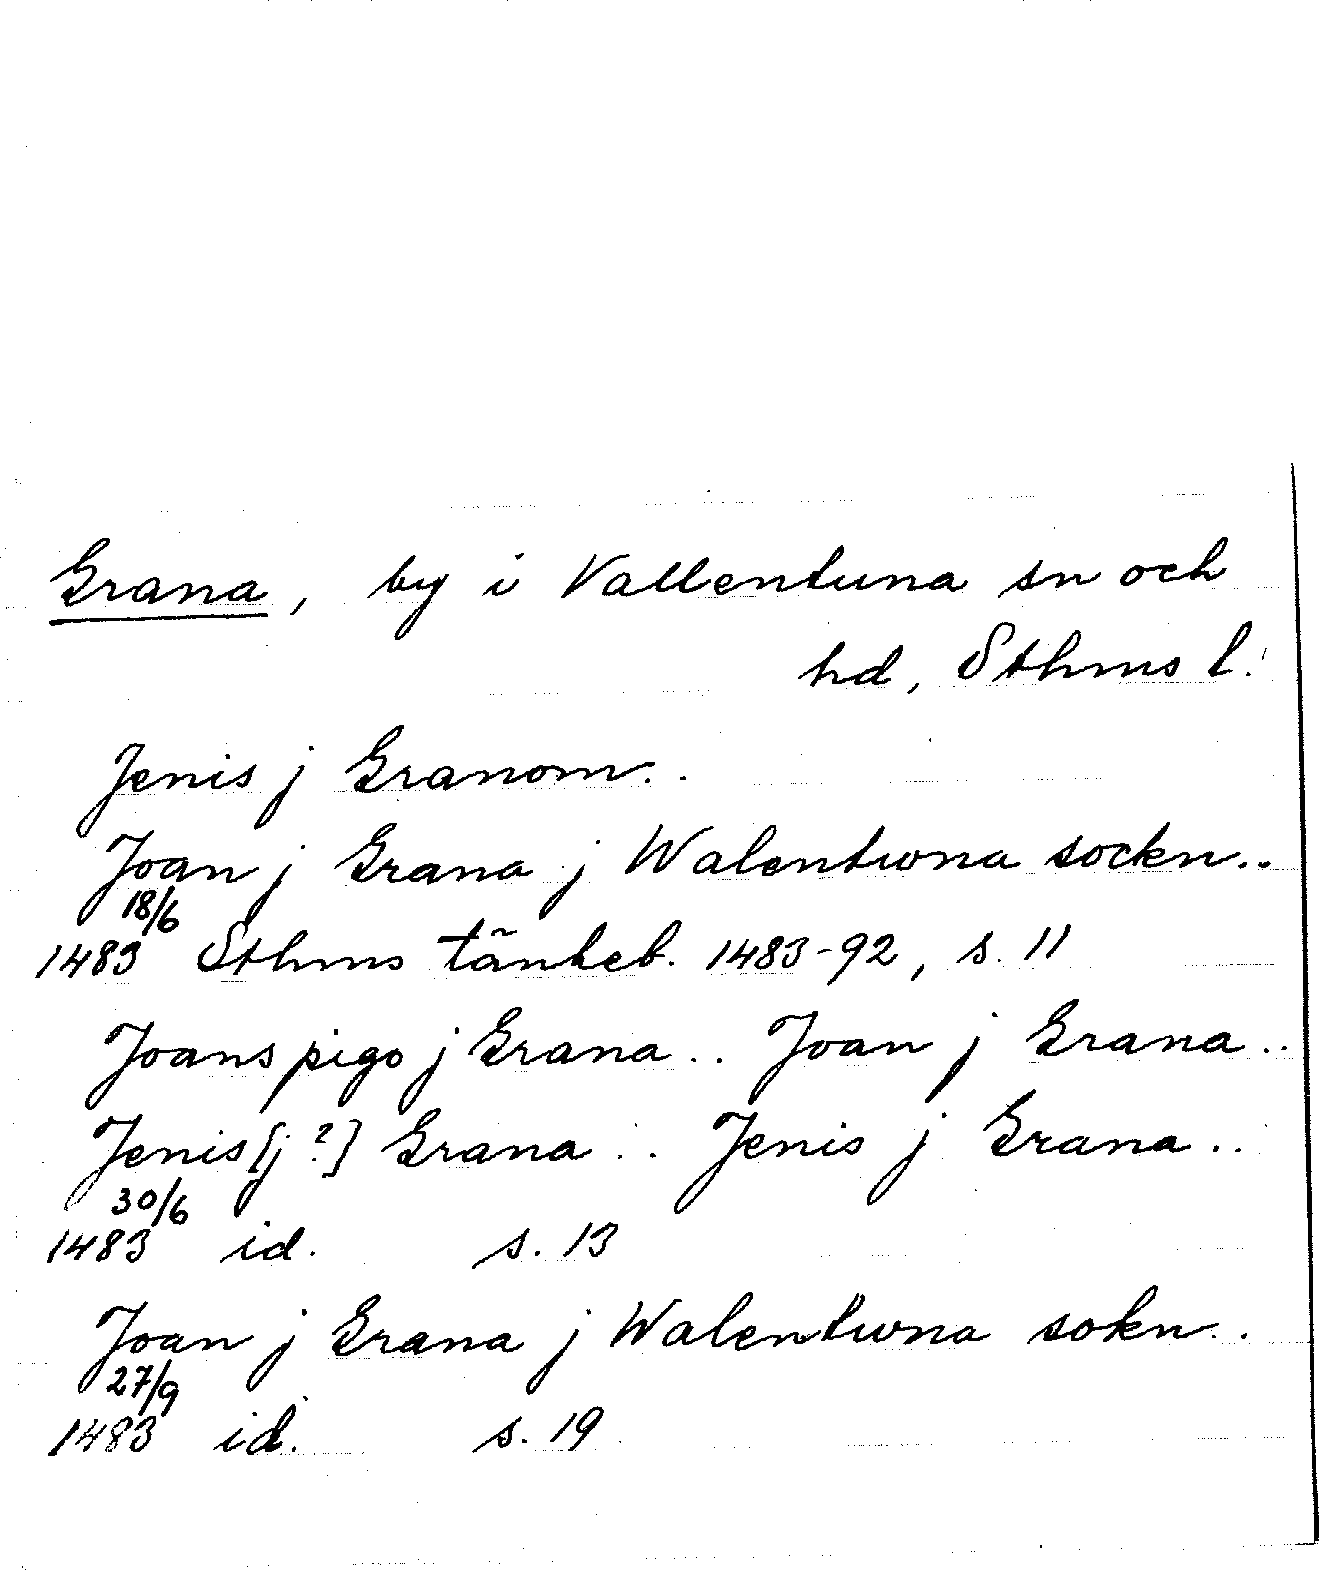 Grana, by i Vallentuna sn och
hd, Sthms l.
Jenis j Granom..
Joan j Grana j Walentwna sockn..
18/6
1483 Sthms tänkeb. 1483-92, s. 11
Joans pigo j Grana .. Joan j Grana ..
Jenis [j?] Grana .. Jenis j Grana ..
30/6
1483 id. s. 13
Joan j Grana j Walentwna sokn..
27/9
1483 id. s. 19